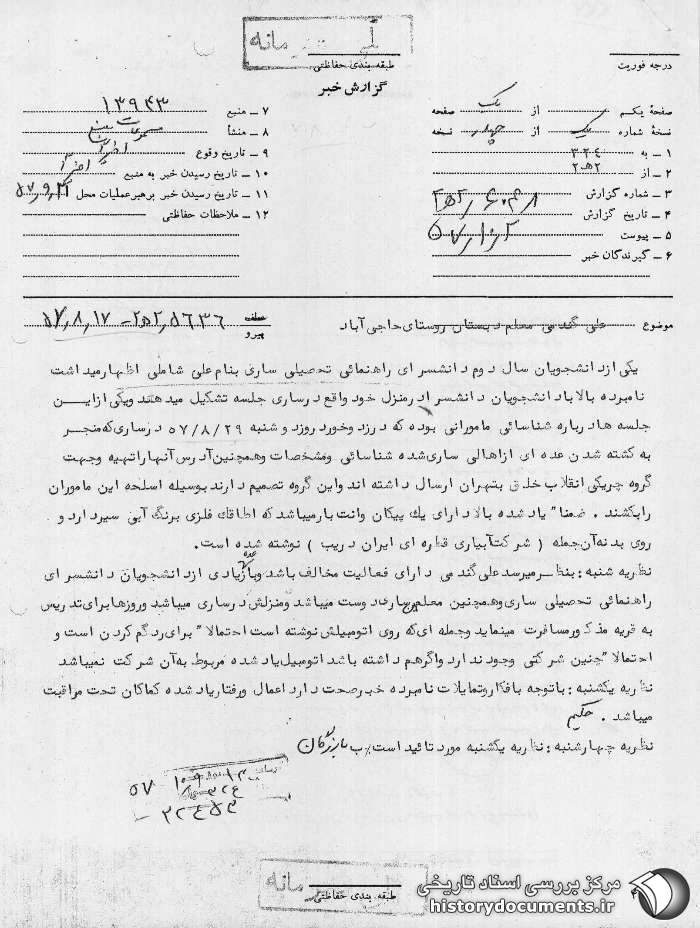 درجه فوریت
طبقه بندی حفاظتی
گزارش خبر
صفحهٔ یکم از یک صفحه
نسخهٔ شماره یک از چهار نسخه
۱ ــ به ۳۲۴
۲ ــ از ۲ه۲
۳ ــ شماره گزارش
۴ ــ تاریخ گزارش
۵ ــ پیوست
۶ ــ گیرندگان خبر
۷ ــ منبع ۱۳۹۴۳
۸ ــ منشأ
۹ ــ تاریخ وقوع
۱۰ ــ تاریخ رسیدن خبر به منبع
۱۱ ــ تاریخ رسیدن خبر برهبر عملیات محل
۱۲ ــ ملاحظات حفاظتی
موضوع علی گندمی معلم دبستان روستای حاجی آباد
عطف
پیرو
۵۷٫۸٫۱۷ – ۲ه۲٫۵۶۳۶
یکی از دانشجویان سال دوم دانشسرای راهنمائی تحصیلی ساری بنام علی شاملی اظهار میداشت
نامبرده بالا با دانشجویان دانشسرا در منزل خود واقع در ساری جلسه تشکیل میدهند و یکی از این
جلسه ها در باره شناسائی مامورانی بوده که در زد و خورد روز دو شنبه ۵۷/۸/۲۹ در ساری که منجر
به کشته شدن عده ای از اهالی ساری شده شناسائی و مشخصات و همچنین آدرس آنها را تهیه و جهت
گروه چریکی انقلاب خلق بتهران ارسال داشته اند و این گروه تصمیم دارند بوسیله اسلحه این ماموران
را بکشند . ضمنا" یاد شده بالا دارای یك پیکان وانت بار میباشد که اطاقك فلزی برنگ آبی سیر دارد و
روی بدنه آن جمله ( شرکت آبیاری قطره ای ایران دریپ ) نوشته شده است.
نظریه شنبه : بنظر میرسد علی گندمی دارای فعالیت مخالف باشد و با عده زیادی از دانشجویان دانشسرای
راهنمائی تحصیلی ساری و همچنین معلمین ساری دوست میباشد و منزلش در ساری میباشد و روزها برای تدریس
به قریه مذکور مسافرت مینماید و جمله ای که روی اتومبیلش نوشته است احتمالا" برای رد گم کردن است و
احتمالا" چنین شرکتی وجود ندارد و اگر هم داشته باشد اتومبیل یاد شده مربوط به آن شرکت نمیباشد
نظریه یکشنبه : با توجه بافکار و تمایلات نامبرده خبر صحت دارد اعمال و رفتار یاد شده کماکان تحت مراقبت
میباشد . حکیم
نظریه چهارشنبه : نظریه یکشنبه مورد تائید است. ب بازرگان
طبقه بندی حفاظتی
مرکز بررسی اسناد تاریخی
historydocuments.ir